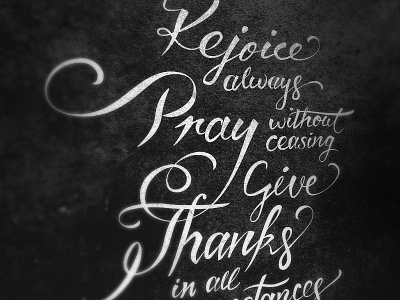 Rejoice
always
Pray without
ceasing
Give
Thanks
in all